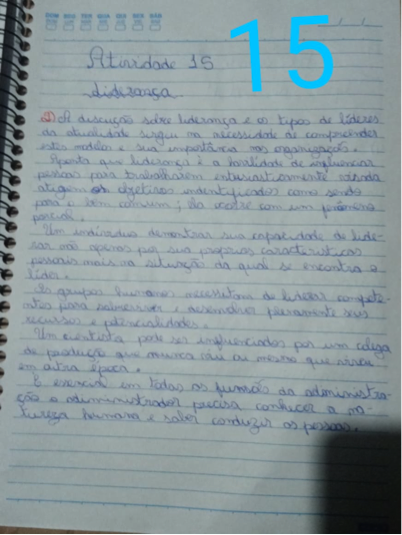 15
Atividade 15
Liderança
2) A discução sobre liderança e os tipos de líderes
da atualidade surgiu na necessidade de compreender
estes modelos e sua importância nas organização.
Aponta que liderança é a habilidade de influenciar
pessoas para trabalharem entusiasticamente visando
atigem os objetivos indentificados como sendo
para o bem comum; ela ocorre com um fenômeno
Um individuo demonstrar sua capacidade de lide-
rar não apenas por sua proprias caracteristicas
pessoais mais na situação da qual se encontra o
líder.
Os grupos humanos necessitam de liderar compete-
ntes para sobreviver e desenvolver plenamente seus
recursos e potencialidades.
Um cientista pode ser influenciados por um colega
de produção que nunca viu ou mesmo que viveu
em outra época.
É essencial em todas as funsões da administra-
ção o administrador precisa conhecer a na-
tureza humana e saber conduzir as pessoas.